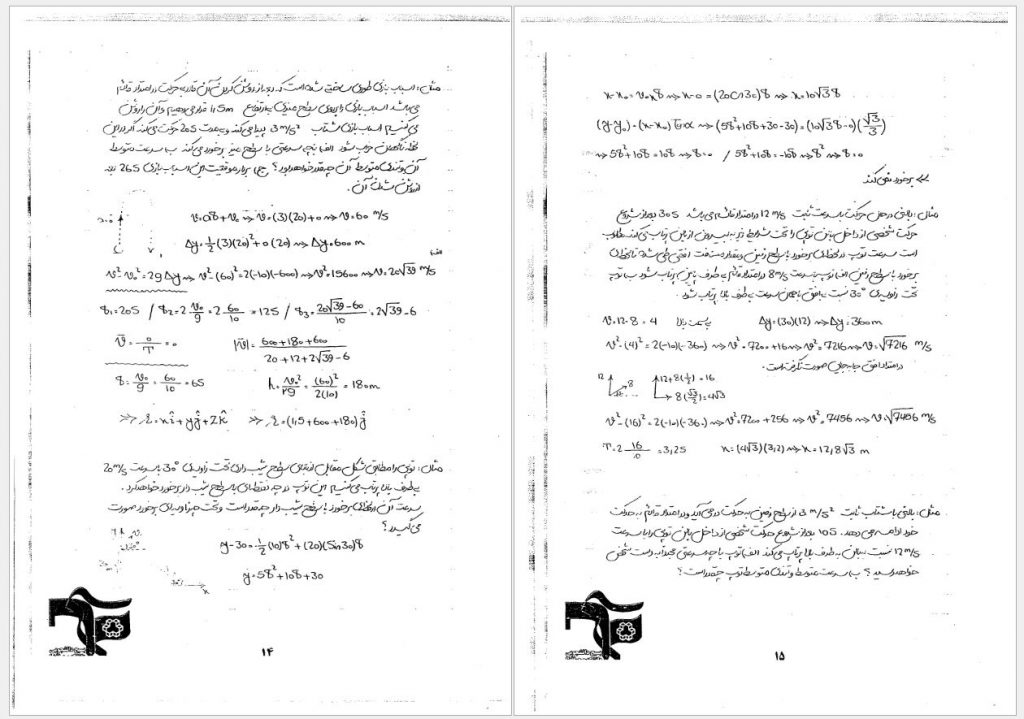 مثال: اسباب بازی طوری ساخته شده است که بعد از روشن کردن آن قادر به حرکت در امتداد قائم
می باشد. اسباب بازی را روی سطح میزی به ارتفاع 1,5m قرار می دهیم و آن را روشن
می کنیم. اسباب بازی شتاب 3 m/s² پیدا می کند و به مدت 20s حرکت می کند اگر در این
لحظه ناگهان خراب شود الف) با چه سرعتی با سطح میز برخورد می کند ب) سرعت متوسط
آن و تندی متوسط آن چقدر خواهد بود؟ ج) بردار موقعیت این اسباب بازی 26s بعد
از روشن شدن آن.
v=at+v₀ ⇝ v=(3)(20)+0 ⇝ v=60 m/s
Δy=½(3)(20)²+0(20) ⇝ Δy=600m
الف
v²-v₀²=2gΔy ⇝ v²-(60)²=2(-10)(-600) ⇝ v²=15600 ⇝ v=20√39 m/s
t₁=20s / t₂=2 v₀/g = 2 60/10 = 12s / t₃= (20√39-60)/10 = 2√39-6
v̄= 0/T = 0 |v̄|= (600+180+600)/(20+12+2√39-6)
t= v₀/g = 60/10 = 6s h= v₀²/2g = (60)²/2(10) = 180m
≫ r=xî+yĵ+zk̂ ≫ r=(1,5+600+180)ĵ
مثال: توپی را مطابق شکل مقابل از بالای سطح شیب داری تحت زاویه ی 30° با سرعت 20m/s
به طرف بالا پرتاب می کنیم این توپ در چه نقطه ای با سطح شیب دار برخورد خواهد کرد.
سرعت آن در لحظه ی برخورد با سطح شیب دار چقدر است و تحت چه زاویه ای برخورد صورت
می گیرد؟
y-30=½(10)t²+(20)(Sin30)t
y=5t²+10t+30
۱۴
x-x₀=v₀ₓt ⇝ x-0=(20Cos30)t ⇝ x=10√3t
(y-y₀)=(x-x₀)tanα ⇝ (5t²+10t+30-30)=(10√3t-0)(√3/3)
⇝ 5t²+10t=10t ⇝ t=0 / 5t²+10t=-10t ⇝ t² ⇝ t=0
برخورد نمی کند
مثال: بالنی در حال حرکت با سرعت ثابت 12 m/s در امتداد قائم می باشد 30s بعد از شروع
حرکت شخصی از داخل بالن توپی را تحت شرایط زیر به بیرون از بالن پرتاب می کند مطلوب
است سرعت توپ در لحظه ی برخورد با سطح زمین و مقدار مسافت افقی طی شده تا لحظه ی
برخورد با سطح زمین الف) توپ با سرعت 8m/s در امتداد قائم به طرف پایین پرتاب شود ب) توپ
تحت زاویه ی 30° نسبت به افق با همان سرعت به طرف بالا پرتاب شود.
v=12-8=4 به سمت بالا Δy=(30)(12) ⇝ Δy=360m
v²-(4)²=2(-10)(-360) ⇝ v²=7200+16 ⇝ v²=7216 ⇝ v=√7216 m/s
در امتداد افق جابجایی صورت نگرفته است.
12 8 12+8(½)=16
8(√3/2)=4√3
v²-(16)²=2(-10)(-360) ⇝ v²=7200+256 ⇝ v²=7456 ⇝ v=√7456 m/s
T=2 16/10 =3,2s x=(4√3)(3,2) ⇝ x=12,8√3 m
مثال: بالنی با شتاب ثابت 3 m/s² از سطح زمین به حرکت در می آید و در امتداد قائم به حرکت
خود ادامه می دهد. 10s بعد از شروع حرکت شخصی از داخل بالن توپی را با سرعت
12m/s نسبت به بالن به طرف بالا پرتاب می کند الف) توپ با چه سرعتی مجددا به دست شخص
خواهد رسید؟ ب) سرعت متوسط و تندی متوسط توپ چقدر است؟
۱۵